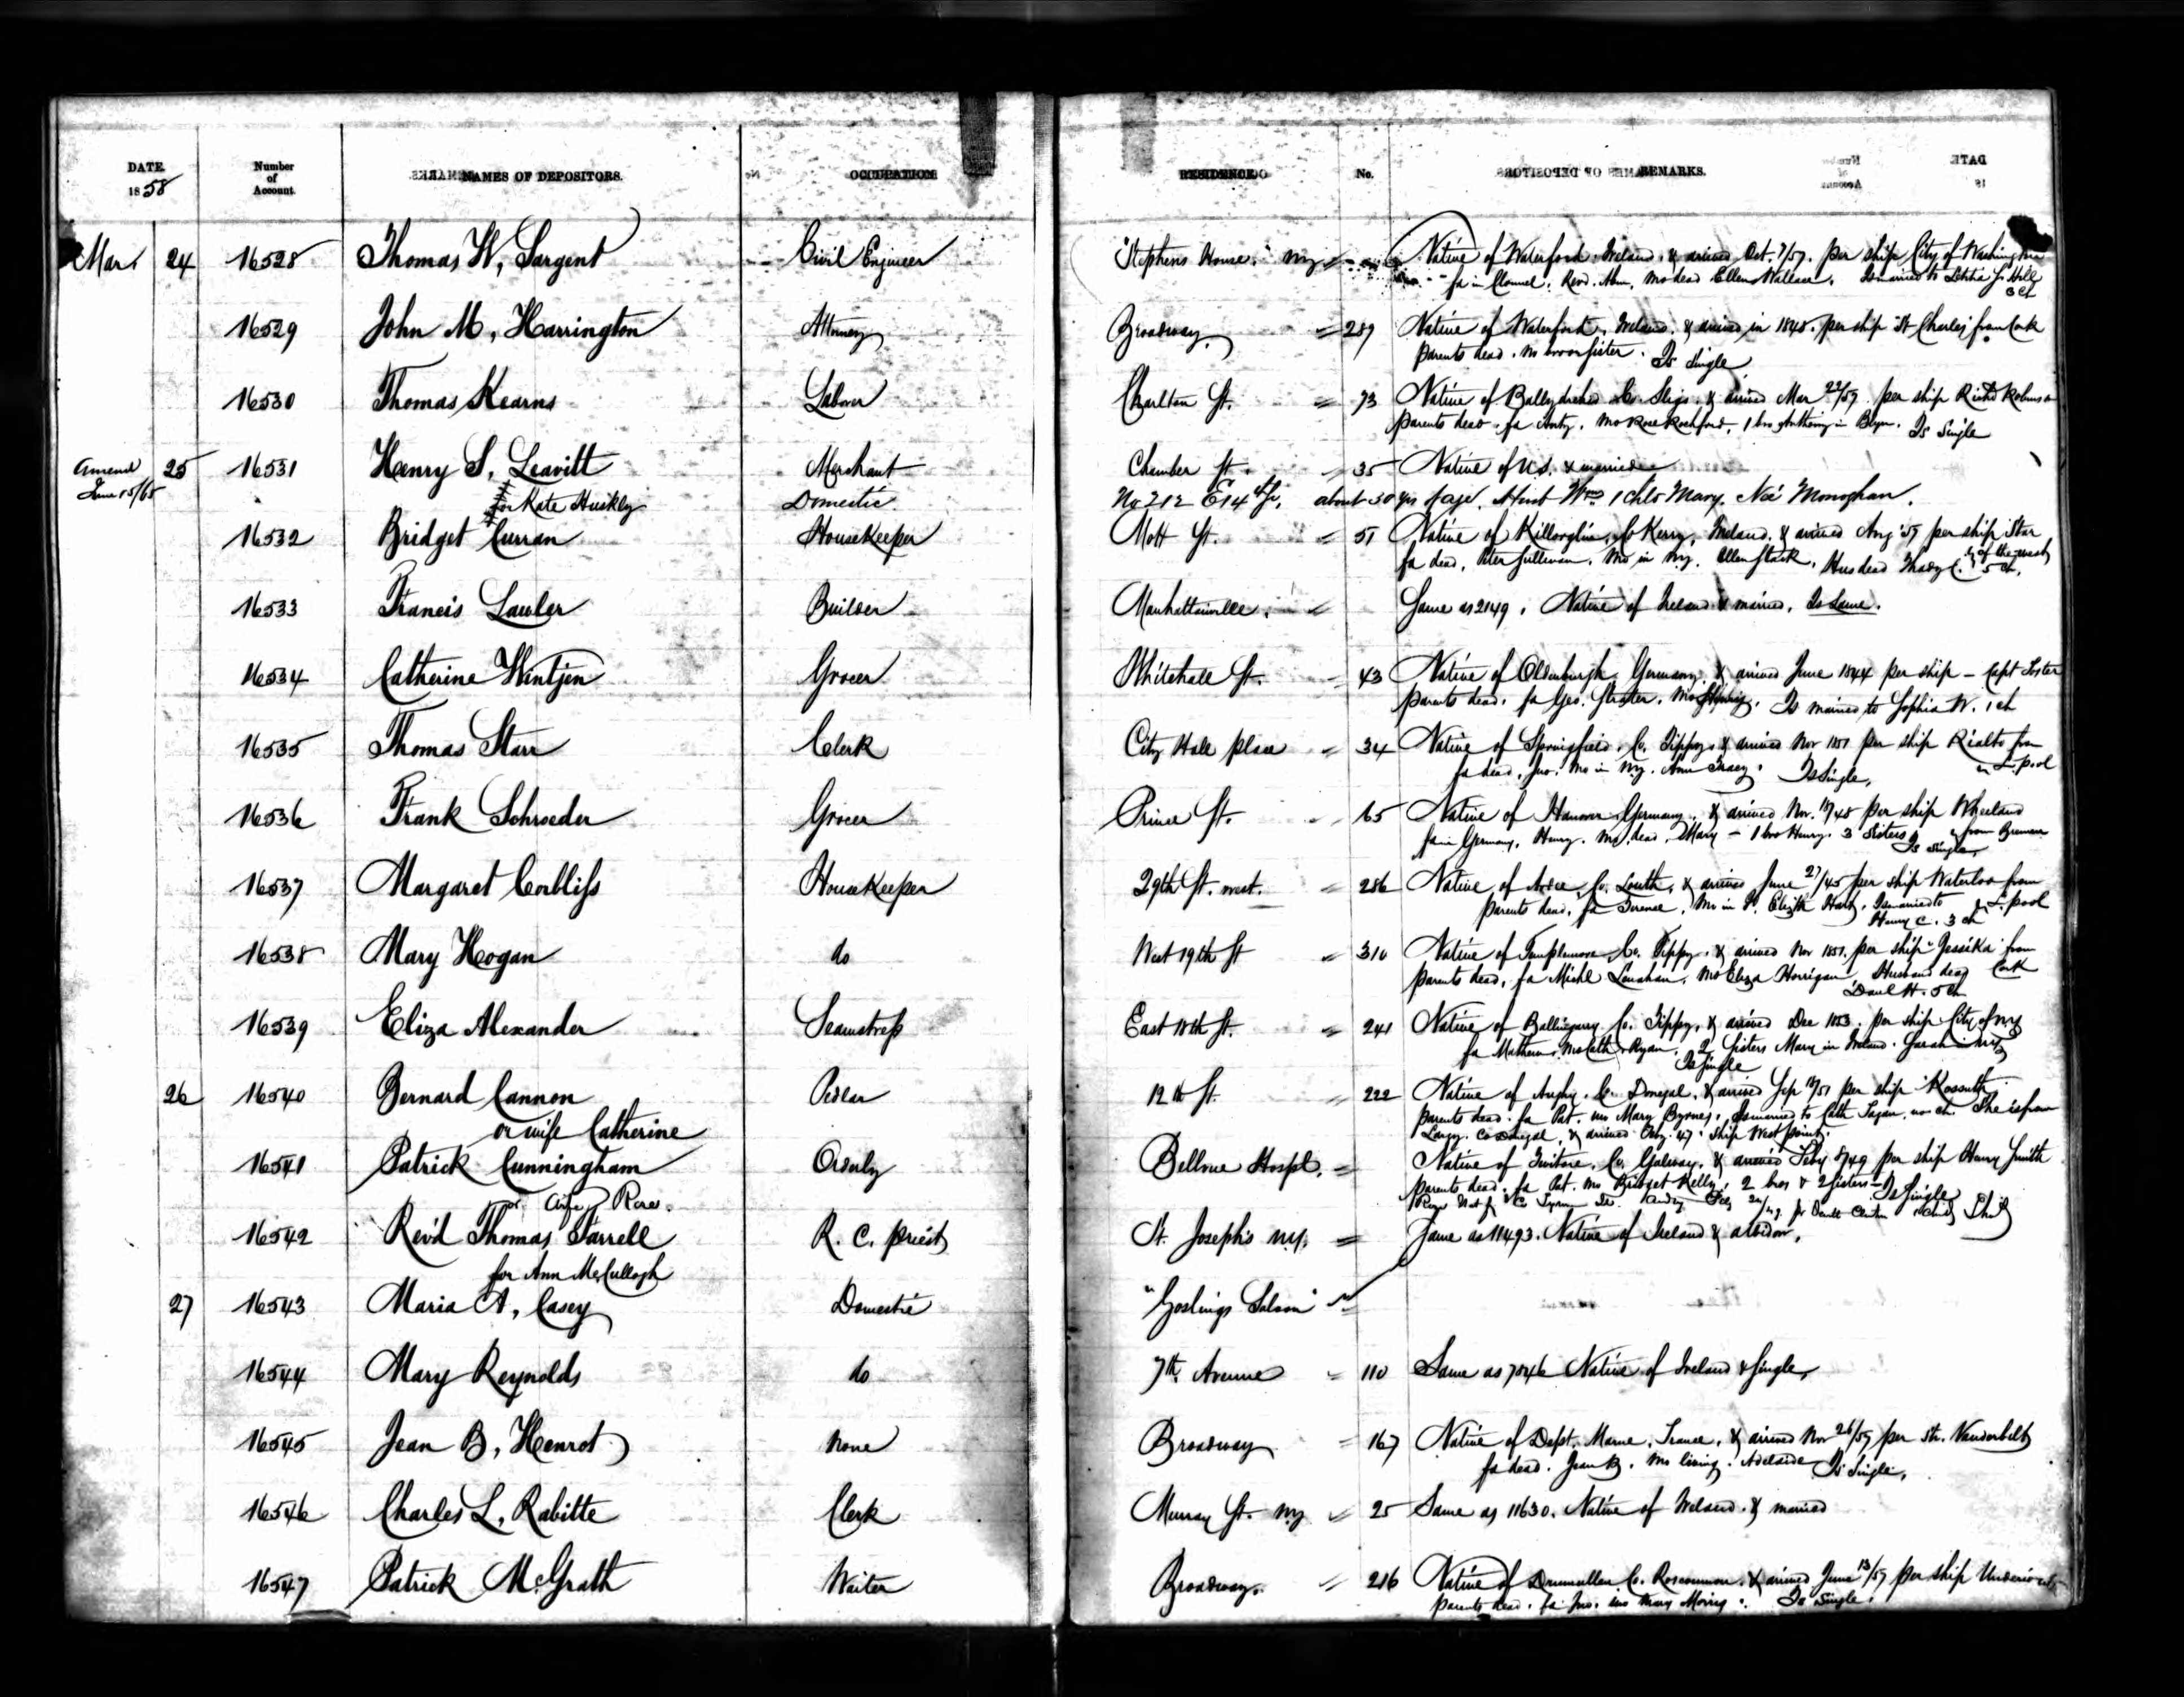 DATE. Number of Account. NAMES OF DEPOSITORS. OCCUPATION RESIDENCE No. REMARKS.
1858
Mar. 24 16528 Thomas W. Sargent Civil Engineer "Stephens House." NY Native of Waterford Ireland. & arived Oct. 7/57. per ship City of Washington
fa in Clonmel. Revd. Abm. Mo dead Ellen Wallace. Is married to Letitia J. Hill
3 ch
16529 John M, Harrington Attorney Broadway 289 Native of Waterford, Ireland. & arived in 1848. per ship St Charles from Cork
parents dead. no bro or sister. Is Single
16530 Thomas Kearns Laborer Charlton St. 73 Native of Co. Sligo. & arived Mar 22/57. per ship Richd Robinson
parents dead. fa Anty. Mo Rose Rochford, 1 bro Anthony in Bkyn. Is Single
Amend 25 16531 Henry S, Leavitt Merchant Chamber St. 35 Native of US. & married
June 15/65 for Kate Huskley Domestic No 212 E 14th St. about 30 yrs of age. Husb Wm 1 chld Mary. Née Monoghan.
16532 Bridget Curran Housekeeper Mott St. 51 Native of Killorglin, Co Kerry, Ireland. & arived Aug '57 per ship Star
of the west
fa dead, Peter Sullivan. Mo in NY. Ellen Stack. Hus dead Thady C. 5 ch.
16533 Francis Lawler Builder Manhattanville. Same as 2149. Native of Ireland & married. Is Same.
16534 Catherine Wintjen Grocer Whitehall St. 43 Native of Oldenburgh Germany. & arived June 1844 per ship - Capt Foster
parents dead. fa Geo. Mo Is married to Sophia W. 1 ch
16535 Thomas Starr Clerk City Hall place 34 Native of Springfield. Co. Tippy. & arived Nov 1851 per ship Rialto from
L.pool
fa dead. Jno. Mo in NY. Ann Tracy. Is Single.
16536 Frank Schroeder Grocer Prince St. 65 Native of Hanover Germany, & arived Nov. /48 per ship Wheeland
from Bremen
fa in Germany. Henry. Mo dead. Mary - 1 bro Henry. 3 Sisters
Is single.
16537 Margaret Corbliss Housekeeper 29th St. west. 286 Native of Ardee, Co. Louth, & arived June 27/45 per ship Waterloo from
L.pool
parents dead. fa Terence. Mo in Elizth Is married to
Henry C. 3 ch
16538 Mary Hogan do West 19th St 310 Native of Templemore Co. Tippy. & arived Nov 1851. per ship "Jessika" from
Cork
parents dead, fa Michl Lanahan. Mo Eliza Horrigan Husband dead
Danl H. 5 ch
16539 Eliza Alexander Seamstress East 18th St. 241 Native of Ballingarry Co. Tippy. & arived Dec 1853. per ship City of NY
fa Mathew. Mo Cath Ryan. 2 Sisters Mary in Ireland. Sarah in NY
Is Single
26 16540 Bernard Cannon Pedlar 12th St. 222 Native of Co. Donegal, & arived Sep /51 per ship "Kossuth"
parents dead. fa Pat. mo Mary Byrnes. Is married to Cath Fagan. no ch. She is from
or wife Catherine Largy. Co Donegal, & arived '47. Ship West point.
16541 Patrick Cunningham Orderly Bellvue Hospl. Native of Co. Galway. & arived Feby /49 per ship Henry Smith
parents dead. fa Pat. mo Bridget Kelly. 2 bros & 2 Sisters - Is Single
or Wife Rose. Rose Nat of Co Tyrone
16542 Rev'd Thomas Farrell R. C. priest St. Joseph's NY. Same as 11493. Native of Ireland &
for Ann McCullogh
27 16543 Maria A, Casey Domestic "Goslings Saloon"
16544 Mary Reynolds do 7th Avenue 110 Same as 7546 Native of Ireland & Single,
16545 Jean B, Henrot None Broadway 167 Native of Dept. Marne, France, & arived Nov 26/57 per Str. Vanderbilt
fa dead. Jean B. Mo living. Adelaide Is Single,
16546 Charles L, Rabitte Clerk Murray St. NY 25 Same as 11630. Native of Ireland. & married
16547 Patrick McGrath Waiter Broadway. 216 Native of Drumallen Co. Roscommon. & arived June 13/57 per ship
parents dead. fa Jno. mo Mary Morris. Is Single.